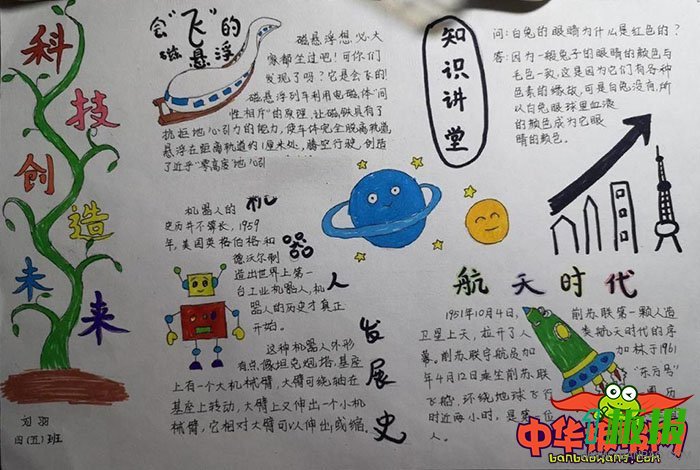 科技创造未来
会“飞”的
磁悬浮
磁悬浮想必大
家都坐过吧！可你们
发现了吗？它是会飞的！
磁悬浮列车利用电磁体“同
性相斥”的原理，让磁铁具有了
抗拒地心引力的能力，使车体完全脱离轨道，
悬浮在距离轨道约1厘米处，腾空行驶，创造
了近乎“零高度”地心引
知识讲堂
问：白兔的眼睛为什么是红色的？
答：因为一般兔子的眼睛的颜色与
毛色一致，这是因为它们有各种
色素的缘故，可是白兔没有，所
以白兔眼球里血液
的颜色成为它眼
睛的颜色。
机器人发展史
机器人的
历史并不算长，1959
年，美国英格伯格和
德沃尔制
造出世界上第一
台工业机器人，机
器人的历史才真正
开始。
这种机器人外形
有点像坦克炮塔，基座
上有一个大机械臂，大臂可绕轴在
基座上转动，大臂上又伸出一个小机
械臂，它相对大臂可以伸出或缩，
航天时代
1951年10月4日，前苏联第一颗人造
卫星上天，拉开了人类航天时代的序
幕。前苏联宇航员加加林于1961
年4月12日乘坐前苏联“东方号”
飞船，环绕地球飞行
时近两小时，是第一位
人。
四（五）班
中华
banbaowang.com